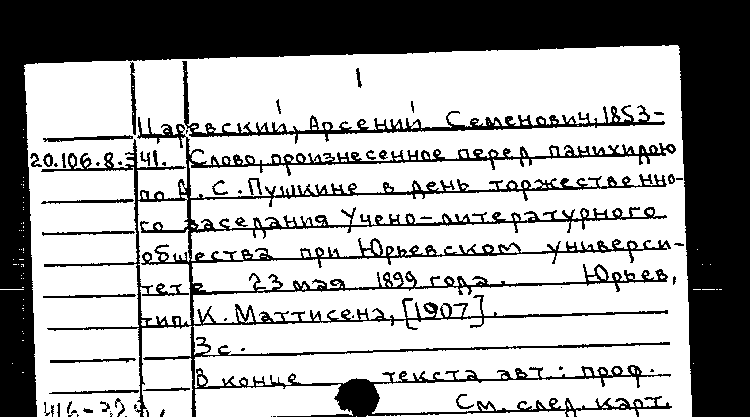 1
Царевский, Арсений Семенович, 1853-
20.106.8.341. Слово, произнесенное перед панихидою
по А.С.Пушкине в день торжественно-
го заседания Учено-литературного
общества при Юрьевском универси-
тете 23 мая 1899 года. Юрьев,
тип. К. Маттисена, [1907].
3 с.
В конце текста авт.: проф.
См. след. карт.